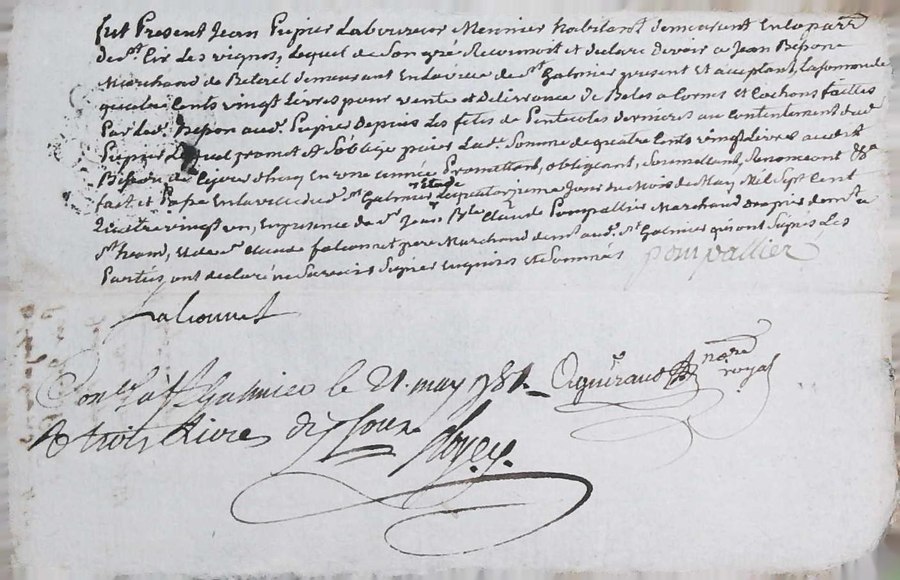 fut Present Jean Pupier Laboureur Meunier habitant demeurant En la parr.
de st. Cir Les vignes, Lequel de Son gré Reconnoit et declare devoir a Jean Bisson
Marchand de demeurant En la ville de st. Galmier present Et acceptant, La somme de
quatre Cents vingt Livres pour vente et Delivrance de Betes a Cornes et Cochons faittes
Par led. Bisson aud. Pupier Depuis Les fetes de Pentecotes dernieres au Contentement dud.
Pupier Lequel promet Et Soblige paier Lad. Somme de quatre Cents vingt Livres aud.
Bisson de En une année Promettant, obligeant, Soumettant, Renonceant &a
fait et Passe En la ville de st. Galmier Etude Le quatorzieme Jour du Mois de May, Mil Sept Cent
Quatre vingt un, En presence de sr. Jean Bte. Claude Pompallier Marchand Drapier demt. a
st. heand, Et de sr. Claude falconnet pere Marchand demt. aud. st. Galmier qui ont Signés Les
Parties ont declaré ne Savoir Signer Enquises et Sommés pompallier
falconnet
Con.lé a st Galmier le 21 may 1781 Aguiraud no.re royal
R trois Livres dix Sous